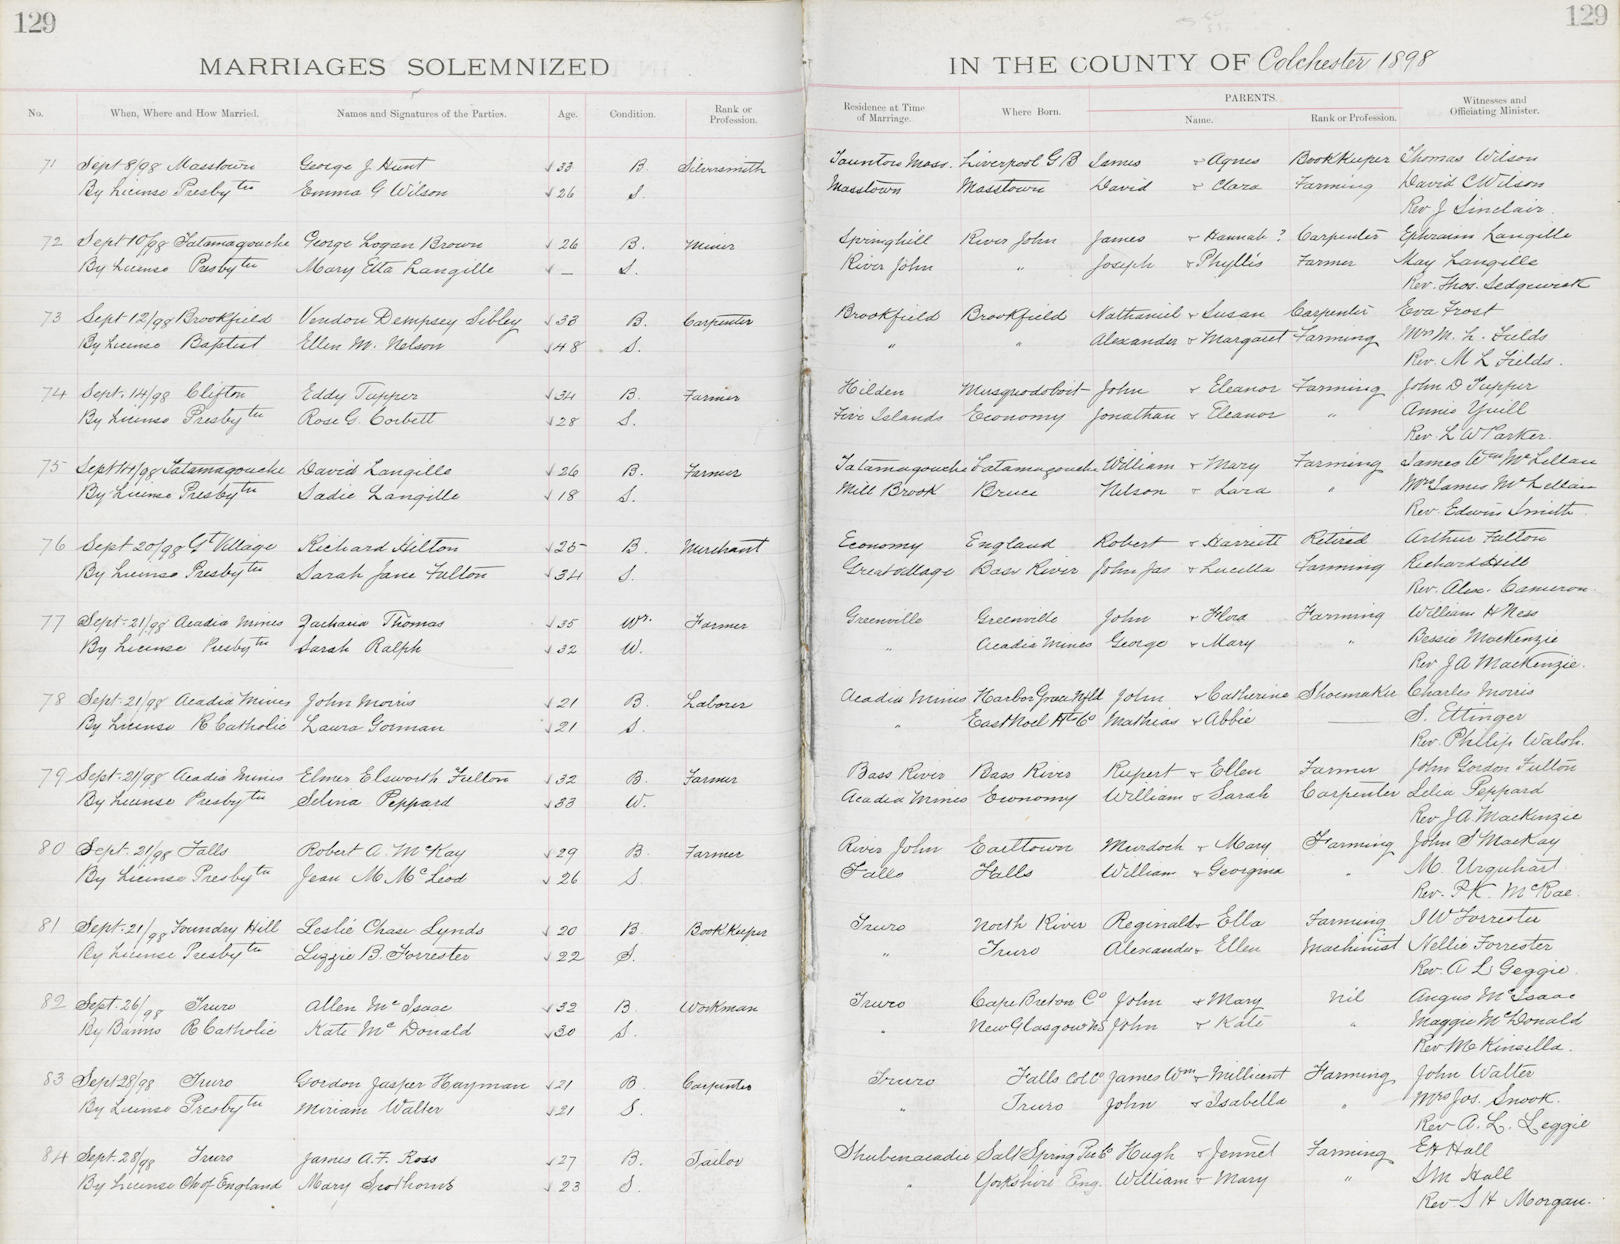 129
129
MARRIAGES SOLEMNIZED
IN THE COUNTY OF Colchester 1898
No. When, Where and How Married. Names and Signatures of the Parties. Age. Condition. Rank or Profession. Residence at Time of Marriage. Where Born. PARENTS. Name. Rank or Profession. Witnesses and Officiating Minister.
71 Sept 8/98 Masstown George J. Hunt √ 33 B. Silversmith Taunton Mass. Liverpool G B James & Agnes BookKeeper Thomas Wilson
By License Presbytn Emma G Wilson √ 26 S. Masstown Masstown David & Clara Farming David C Wilson
Rev J Sinclair.
72 Sept 10/98 Tatamagouche George Logan Brown √ 26 B. Miner Springhill River John James & Hannah ? Carpenter Ephraim Langille
By License Presbytn Mary Etta Langille √ — S. River John " Joseph & Phyllis Farmer May Langille
Rev. Thos. Sedgewick
73 Sept 12/98 Brookfield Vendon Dempsey Sibley √ 33 B. Carpenter Brookfield Brookfield Nathaniel & Susan Carpenter Eva Frost
By License Baptist Ellen M. Nelson √ 48 S. " " Alexander & Margaret Farming Mrs M. L. Fields
Rev. M L Fields.
74 Sept. 14/98 Clifton Eddy Tupper √ 34 B. Farmer Hilden Musquodoboit John & Eleanor Farming John D Tupper
By License Presbytn Rose G. Corbett √ 28 S. Five Islands Economy Jonathan & Eleanor " Annie Yuill
Rev. L W Parker.
75 Sept 14/98 Tatamagouche David Langille √ 26 B. Farmer Tatamagouche Tatamagouche William & Mary Farming James Wm McLellan
By License Presbytn Sadie Langille √ 18 S. Mill Brook Bruce Nelson & Lara " Mrs James McLellan
Rev. Edwin Smith.
76 Sept 20/98 Gt Village Richard Hilton √ 25 B. Merchant Economy England Robert & Harriett Retired Arthur Fulton
By License Presbytn Sarah Jane Fulton √ 34 S. Great village Bass River John Jas & Lucilla Farming Richard Hill
Rev. Alex. Cameron.
77 Sept. 21/98 Acadia Mines Zacharia Thomas √ 35 Wr. Farmer Greenville Greenville John & Flora Farming William H Ness
By License Presbytn Sarah Ralph √ 32 W. " Acadia Mines George & Mary " Bessie MacKenzie
Rev J A MacKenzie.
78 Sept. 21/98 Acadia Mines John Morris √ 21 B. Laborer Acadia Mines Harbor Grace Nfld John & Catherine Shoemaker Charles Morris
By License R Catholic Laura Gorman √ 21 S. " East Noel Hts Co Mathias & Abbie S. Ettinger
Rev. Phillip Walsh.
79 Sept. 21/98 Acadia Mines Elmer Elsworth Fulton √ 32 B. Farmer Bass River Bass River Rupert & Ellen Farmer John Gordon Fulton
By License Presbytn Selina Peppard √ 33 W. Acadia Mines Economy William & Sarah Carpenter Lelia Peppard
Rev J A. MacKinzie
80 Sept. 21/98 Falls Robert A. McKay √ 29 B. Farmer River John Earltown Murdoch & Mary Farming John S MacKay
By License Presbytn Jean M McLeod √ 26 S. Falls Falls William & Georgina " M. Urquhart
Rev. P.K. McRae.
81 Sept. 21/98 Foundry Hill Leslie Chase Lynds √ 20 B. BookKeeper Truro North River Reginald & Ella Farming J W Forrester
By License Presbytn Lizzie B. Forrester √ 22 S. " Truro Alexander & Ellen Machinist Nellie Forrester
Rev. A L Geggie.
82 Sept. 26/98 Truro Allen McIsaac √ 32 B. Workman Truro Cape Breton Co John & Mary nil Angus McIsaac
By Banns R Catholic Kate McDonald √ 30 S. " New Glasgow NS John & Kate " Maggie McDonald
Rev M Kinsella.
83 Sept 28/98 Truro Gordon Jasper Hayman √ 21 B. Carpenter Truro Falls Col Co James Wm & Millicent Farming John Walter
By License Presbytn Miriam Walter √ 21 S. " Truro John & Isabella " Mrs Jos. Snook.
Rev A. L. Geggie
84 Sept. 28/98 Truro James A. F. Ross √ 27 B. Tailor Shubenacadie Salt Spring Pic Co Hugh & Jennet Farming E H Hall
By License Ch of England Mary √ 23 S. " Yorkshire Eng. William & Mary " S M Hall
Rev. S H Morgan.